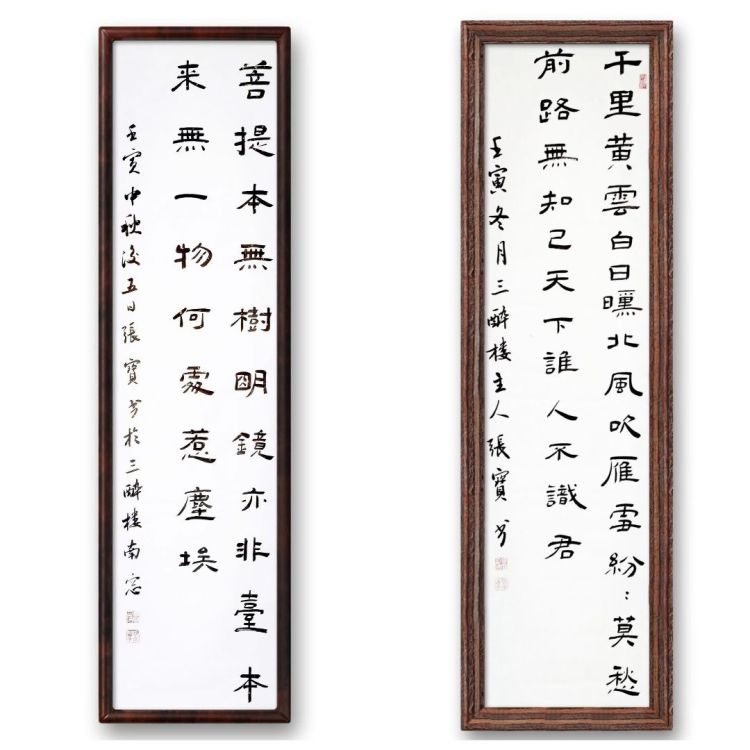 菩提本無樹明鏡亦非臺本
来無一物何處惹塵埃
壬寅中秋後五日張寶書於三醉樓南窓
千里黄雲白日曛北風吹雁雪紛:莫愁
前路無知己天下誰人不識君
壬寅冬月三醉楼主人張寶書